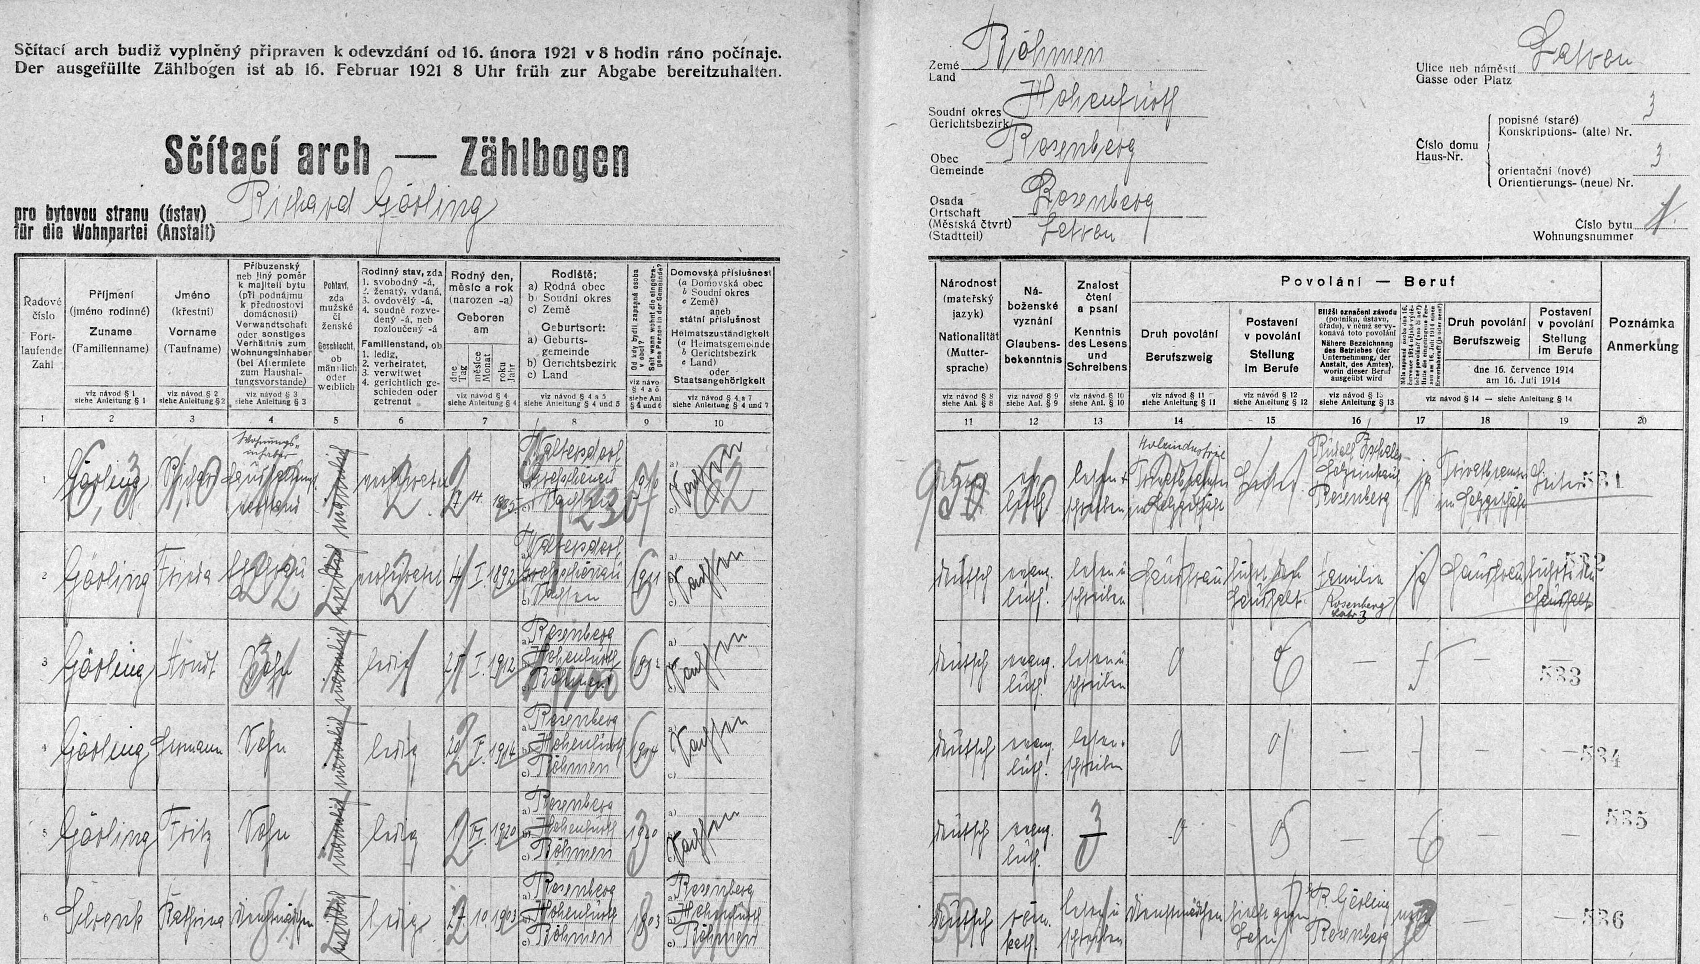 Sčítací arch budiž vyplněný připraven k odevzdání od 16. února 1921 v 8 hodin ráno počínaje.
Der ausgefüllte Zählbogen ist ab 16. Februar 1921 8 Uhr früh zur Abgabe bereitzuhalten.
Sčítací arch — Zählbogen
pro bytovou stranu (ústav)
für die Wohnpartei (Anstalt)
Richard Gösling
Země
Land
Böhmen
Soudní okres
Gerichtsbezirk
Hohenfurth
Obec
Gemeinde
Rosenberg
Osada
Ortschaft
(Městská čtvrť)
(Stadtteil)
Rosenberg
Latron
Ulice neb náměstí
Gasse oder Platz
Latron
Číslo domu
Haus-Nr.
popisné (staré)
Konskriptions- (alte) Nr.
3
orientační (nové)
Orientierungs- (neue) Nr.
3
Číslo bytu
Wohnungsnummer
1.
Řadové
číslo
Fort-
laufende
Zahl
Příjmení
(jméno rodinné)
Zuname
(Familienname)
viz návod § 1
siehe Anleitung § 1
Jméno
(křestní)
Vorname
(Taufname)
viz návod § 2
siehe Anleitung § 2
Příbuzenský
neb jiný poměr
k majiteli bytu
(při podnájmu
k přednostovi
domácnosti)
Verwandtschaft
oder sonstiges
Verhältnis zum
Wohnungsinhaber
(bei Aftermiete
zum Haushal-
tungsvorstande)
viz návod § 3
siehe Anleitung § 3
Pohlaví,
zda
mužské
či
ženské
Geschlecht,
ob
männlich
oder
weiblich
Rodinný stav, zda
1. svobodný -á,
2. ženatý, vdaná,
3. ovdovělý -á,
4. soudně rozve-
dený -á, neb
rozloučený -á
Familienstand, ob
1. ledig,
2. verheiratet,
3. verwitwet
4. gerichtlich ge-
schieden oder
getrennt
Rodný den,
měsíc a rok
(narozen -a)
Geboren
am
dne
Tag
měsíce
Monat
roku
Jahr
viz návod § 4
siehe Anleitung § 4
Rodiště:
a) Rodná obec
b) Soudní okres
c) Země
Geburtsort:
a) Geburts-
gemeinde
b) Gerichtsbezirk
c) Land
viz návod § 4 a 5
siehe Anleitung § 4 und 5
Od kdy bydlí zapsaná osoba
v obci?
Seit wann wohnt die eingetra-
gene Person in der Gemeinde?
viz návod
§ 4 a 6
siehe Anl
§ 4 und 6
Domovská příslušnost
(a Domovská obec
b Soudní okres
c Země)
aneb
státní příslušnost
Heimatszuständigkeit
(a Heimatsgemeinde
b Gerichtsbezirk
c Land)
oder
Staatsangehörigkeit
viz návod § 4 a 7
siehe Anleitung § 4 und 7
Národnost
(mateřský
jazyk)
Nationalität
(Mutter-
sprache)
viz návod § 8
siehe Anl. § 8
Ná-
boženské
vyznání
Glaubens-
bekenntnis
viz návod § 9
siehe Anl. § 9
Znalost
čtení
a psaní
Kenntnis
des Lesens
und
Schreibens
viz návod § 10
siehe Anl. § 10
Povolání — Beruf
Druh povolání
Berufszweig
viz návod § 11
siehe Anleitung § 11
Postavení
v povolání
Stellung
im Berufe
viz návod § 12
siehe Anleitung § 12
Bližší označení závodu
(podniku, ústavu,
úřadu), v němž se vy-
konává toto povolání
Nähere Bezeichnung
des Betriebes (der
Unternehmung, der
Anstalt, des Amtes),
worin dieser Beruf
ausgeübt wird
viz návod § 13
siehe Anleitung § 13
Druh povolání
Berufszweig
Postavení
v povolání
Stellung
im Berufe
dne 16. července 1914
am 16. Juli 1914
viz návod § 14 — siehe Anleitung § 14
Poznámka
Anmerkung
1 2 3 4 5 6 7 8 9 10 11 12 13 14 15 16 17 18 19 20
1 Gösling Richard Wohnungs-
inhaber
Haushaltungs-
vorstand männlich verheiratet 1885 Waltersdorf
Großschönau
Sachsen 1910 Sachsen
deutsch ev.
luth. lesen +
schreiben Holzindustrie
Leiter Rosenberg ja Leiter 531
2 Gösling Frieda Ehefrau weiblich verheiratet I. 1892 Waltersdorf
Großschönau
Sachsen 1911 Sachsen
deutsch evang.
luth. lesen u
schreiben Hausfrau führt den
Haushalt Familie
Rosenberg
Latr. 3 ja Hausfrau führte den
Haushalt 532
3 Gösling Arndt Sohn männlich ledig I. 1912 Rosenberg
Hohenfurth
Böhmen 1912 Sachsen
deutsch evang.
luth. lesen u
schreiben 0 — — — 533
4 Gösling Hermann Sohn männlich ledig 1914 Rosenberg
Hohenfurth
Böhmen 1914 Sachsen
deutsch evang.
luth. lesen
schreiben 0 0 — — — 534
5 Gösling Fritz Sohn männlich ledig 1920 Rosenberg
Hohenfurth
Böhmen 1920 Sachsen
deutsch evang.
luth. 0 — — — 535
6 Katharina Dienstmädchen weiblich ledig 10 1903 Rosenberg
Hohenfurth
Böhmen 1903 Rosenberg
Hohenfurth
Böhmen
deutsch röm.
kath. lesen u
schreiben Dienstmädchen R. Gösling
Rosenberg — — 536